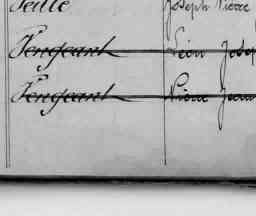 Seille Joseph Pierre
Pengeant Léon Joseph
Pengeant Pierre Jean